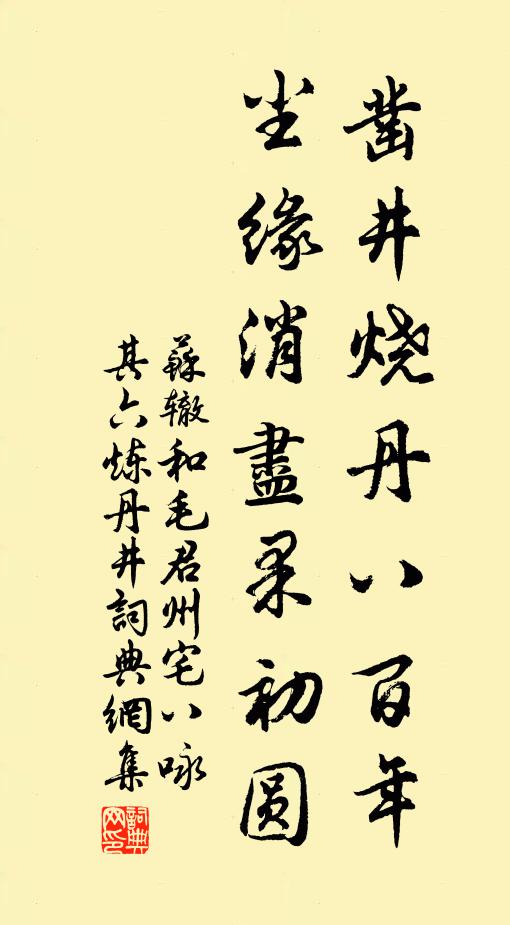 凿井烧丹八百年
尘缘消盡果初圆
蘇辙和毛君州宅八咏
其六炼丹井詞典網集
詞典网印